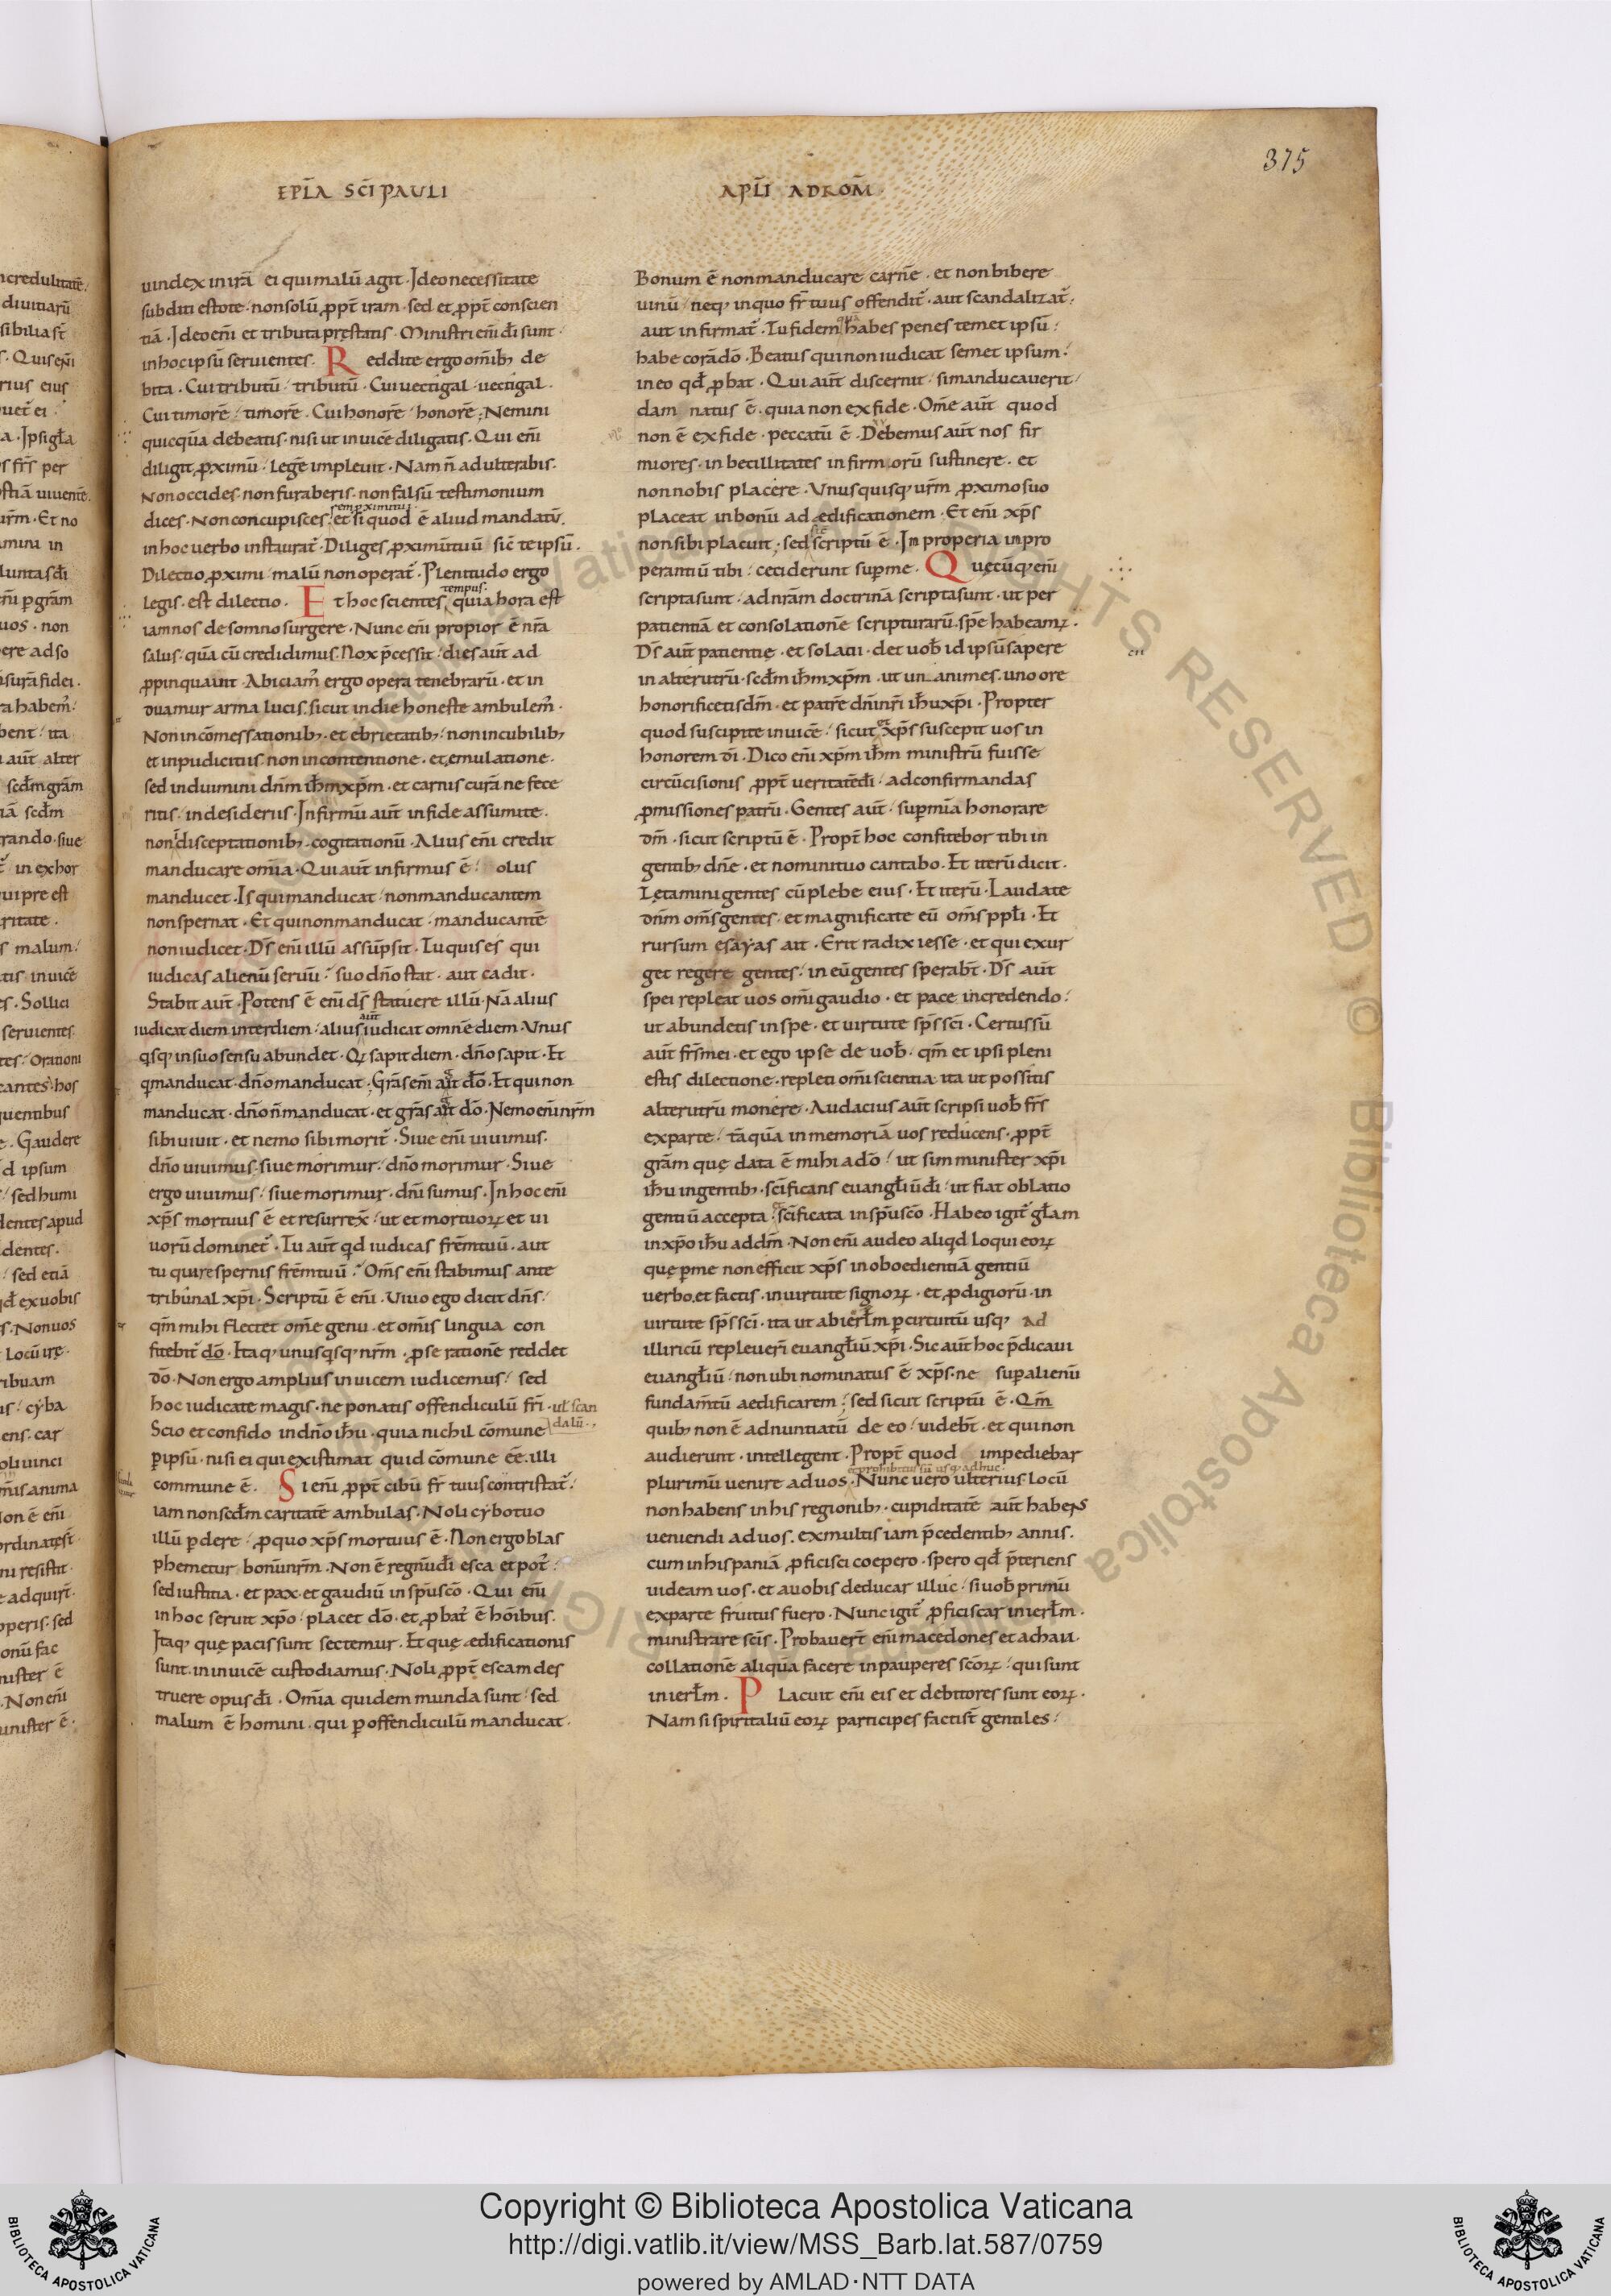 375
EPĪA SC̄I PAULI
APLĪ AD ROM̄
uindex in irā ei qui malū agit · Ideo necessitate
subditi estote · non solū ꝓpt̄ iram · sed et ꝓpt̄ conscien
tiā · Ideo enī et tributa prestatis · Ministri enī dī sunt ·
in hoc ipsū seruientes · Reddite ergo om̄ibꝫ de
bita · Cui tributū / tributū · Cui uectigal / uectigal ·
Cui timorē / timorē · Cui honorē / honorē · Nemini
quicquā debeatis · nisi ut inuicē diligatis · Qui enī
diligit ꝓximū / legē impleuit · Nam n̄ adulterabis ·
Non occides · non furaberis · non falsū testimonium
dices · Non concupisces · rem ꝓximi tui · et si quod ē aliud mandatū ·
in hoc uerbo instaurat̄ · Diliges ꝓximū tuū sic̄ te ipsū ·
Dilectio ꝓximi / malū non operat̄ · Plenitudo ergo
legis · est dilectio · Et hoc scientes tempus · quia hora est
iam nos de somno surgere · Nunc enī propior ē nr̄a
salus / quā cū credidimus · Nox p̄cessit / dies aūt ad
ꝓpinquauit · Abiciam᾽ ergo opera tenebrarū · et in
duamur arma lucis · sicut in die honeste ambulem᾽ ·
Non in cōmessationibꝫ · et ebrietatibꝫ / non in cubilibꝫ
et inpudicitiis · non in contentione · et emulatione ·
sed induimini dn̄m ih̄m xp̄m · et carnis curā ne fece
ritis / in desideriis · Infirmū aūt in fide assumite ·
non i disceptationibꝫ · cogitationū · Alius enī credit
manducare om̄ia · Qui aūt infirmus ē / olus
manducet · Is qui manducat / non manducantem
non spernat · Et qui non manducat / manducantē
non iudicet · Ds̄ enī illū assūpsit · Tu quis es qui
iudicas alienū seruū · suo dn̄o stat · aut cadit ·
Stabit aūt · Potens ē enī ds̄ statuere illū · Nā alius
iudicat diem inter diem / alius aūt iudicat omnē diem · Unus
qsqꝫ in suo sensu abundet · Q sapit diem · dn̄o sapit · Et
q manducat · dn̄o manducat · Gr̄as enī ait dō · Et qui non
manducat · dn̄o n̄ manducat · et gr̄as ait dō · Nemo enī nr̄m
sibi uiuit · et nemo sibi morit̄ · Siue enī uiuimus ·
dn̄o uiuimus · siue morimur / dn̄o morimur · Siue
ergo uiuimus / siue morimur · dn̄i sumus · In hoc enī
xp̄s mortuus ē et resurrex̄ / ut et mortuoꝝ et ui
uorū dominet̄ · Tu aūt qd iudicas frēm tuū · aut
tu quire spernis frēm tuū · Om̄s enī stabimus ante
tribunal xp̄i · Scriptū ē enī · Uiuo ego dicit dn̄s /
qm̄ mihi flectet om̄e genu · et om̄is lingua con
fitebit̄ dō · Itaqꝫ unusqsqꝫ nr̄m · ꝑ se rationē reddet
dō · Non ergo amplius inuicem iudicemus / sed
hoc iudicate magis · ne ponatis offendiculū fr̄i · ul̄ scan
dalū ·
Scio et confido in dn̄o ih̄u · quia nichil cōmune
ꝑ ipsū · nisi ei qui existimat quid cōmune eē · illi
commune ē · Si enī ꝓpt̄ cibū fr̄ tuus contristat̄ /
iam non scd̄m caritatē ambulas · Noli cybo tuo
illū ꝑdere / ꝓ quo xp̄s mortuus ē · Non ergo blas
phemetur bonū nr̄m · Non ē regnū dī esca et pot᾽ /
sed iustitia · et pax · et gaudiū in sp̄u sc̄o · Qui enī
in hoc seruit xp̄o / placet dō · et ꝓbat᾽ ē hōibus ·
Itaqꝫ que pacis sunt sectemur · Et que aedificationis
sunt · in inuicē custodiamus · Noli ꝓpt̄ escam des
truere opus dī · Om̄ia quidem munda sunt / sed
malum ē homini · qui ꝑ offendiculū manducat ·
Bonum ē non manducare carnē · et non bibere
uinū / neqꝫ in quo fr̄ tuus offendit̄ · aut scandalizat̄ /
aut infirmat̄ · Tu fidem quā habes penes temet ipsū /
habe corā dō · Beatus qui non iudicat semet ipsum /
in eo qd̄ ꝓbat · Qui aūt discernit / si manducauerit /
damnatus ē · quia non ex fide · Om̄e aūt quod
non ē ex fide · peccatū ē · Debemus aūt nos fir
miores · inbecillitates infirmorū sustinere · et
non nobis placere · Unusquisqꝫ ur̄m ꝓximo suo
placeat in bonū ad aedificationem · Et enī xp̄s
non sibi placuit · sed sic̄ scriptū ē · Improperia inpro
perantiū tibi / ceciderunt sup me · Quecūqꝫ enī
scripta sunt / ad nr̄am doctrinā scripta sunt · ut per
patientiā et consolationē scripturarū · spē habeamꝰ ·
Ds̄ aūt patientie · et solatii · det uob̄ id ipsū sapere
in alterutrū · scd̄m ih̄m xp̄m · ut unanimes · uno ore
honorificetis dm̄ · et patrē dn̄i nr̄i ih̄u xp̄i · Propter
quod suscipite inuicē / sicut et xp̄s suscepit uos in
honorem dī · Dico enī xp̄m ih̄m ministrū fuisse
circūcisionis ꝓpt̄ ueritatē dī / ad confirmandas
ꝓmissiones patrū · Gentes aūt / sup mīa honorare
dm̄ · sicut scriptū ē · Propt̄ hoc confitebor tibi in
gentibꝫ dn̄e · et nomini tuo cantabo · Et iterū dicit ·
Letamini gentes cū plebe eius · Et iterū · Laudate
dn̄m om̄s gentes / et magnificate eū om̄s ppl̄i · Et
rursum esayas ait · Erit radix iesse · et qui exur
get regere gentes / in eū gentes sperab̄t · Ds̄ aūt
spei repleat uos om̄i gaudio · et pace in credendo /
ut abundetis in spe · et uirtute sp̄s sc̄i · Certus sū
aūt fr̄s mei · et ego ipse de uob̄ · qm̄ et ipsi pleni
estis dilectione · repleti om̄i scientia ita ut possitis
alterutrū monere · Audacius aūt scripsi uob̄ fr̄s
ex parte / tā quā in memoriā uos reducens · ꝓpt̄
gr̄am que data ē mihi a dō / ut sim minister xp̄i
ih̄u in gentibꝫ · sc̄ificans euangl̄iū dī / ut fiat oblatio
gentiū accepta / sc̄ificata in sp̄u sc̄o · Habeo igit̄ gl̄am
in xp̄o ih̄u ad dm̄ · Non enī audeo aliqd loqui eoꝝ
que ꝑ me non efficit xp̄s in oboedientiā gentiū
uerbo · et factis · in uirtute signoꝝ · et ꝓdigiorū · in
uirtute sp̄s sc̄i · ita ut ab ierl̄m ꝑ circuitū usqꝫ ad
illiricū repleuerī euangl̄iū xp̄i · Sic aūt hoc p̄dicaui
euangl̄iū / non ubi nominatus ē xp̄s · ne sup alienū
fundam̄tū aedificarem / sed sicut scriptū ē · Qm̄
quibꝫ non ē adnuntiatū de eo / uideb̄t · et qui non
audierunt · intellegent · Propt̄ quod impediebar
plurimū uenire ad uos · et prohibitus sū usqꝫ adhuc · Nunc uero ulterius · Locū
non habens in his regionibꝫ · cupiditatē aūt habens
ueniendi ad uos · ex multis iam p̄cedentibꝫ annis ·
cum in hispaniā ꝓficisci coepero · spero qd̄ p̄teriens
uideam uos · et a uobis deducar illuc / si uob̄ primū
ex parte fruitus fuero · Nunc igit̄ ꝓficiscar in ierl̄m ·
ministrare sc̄is · Probauer̄t enī macedones et achaia ·
collationē aliquā facere in pauperes sc̄oꝝ / qui sunt
in ierl̄m · Placuit enī eis et debitores sunt eoꝝ ·
Nam si spiritaliū eoꝝ participes facti st̄ gentiles /
Copyright © Biblioteca Apostolica Vaticana
http://digi.vatlib.it/view/MSS_Barb.lat.587/0759
powered by AMLAD·NTT DATA
BIBLIOTECA APOSTOLICA VATICANA
BIBLIOTECA APOSTOLICA VATICANA